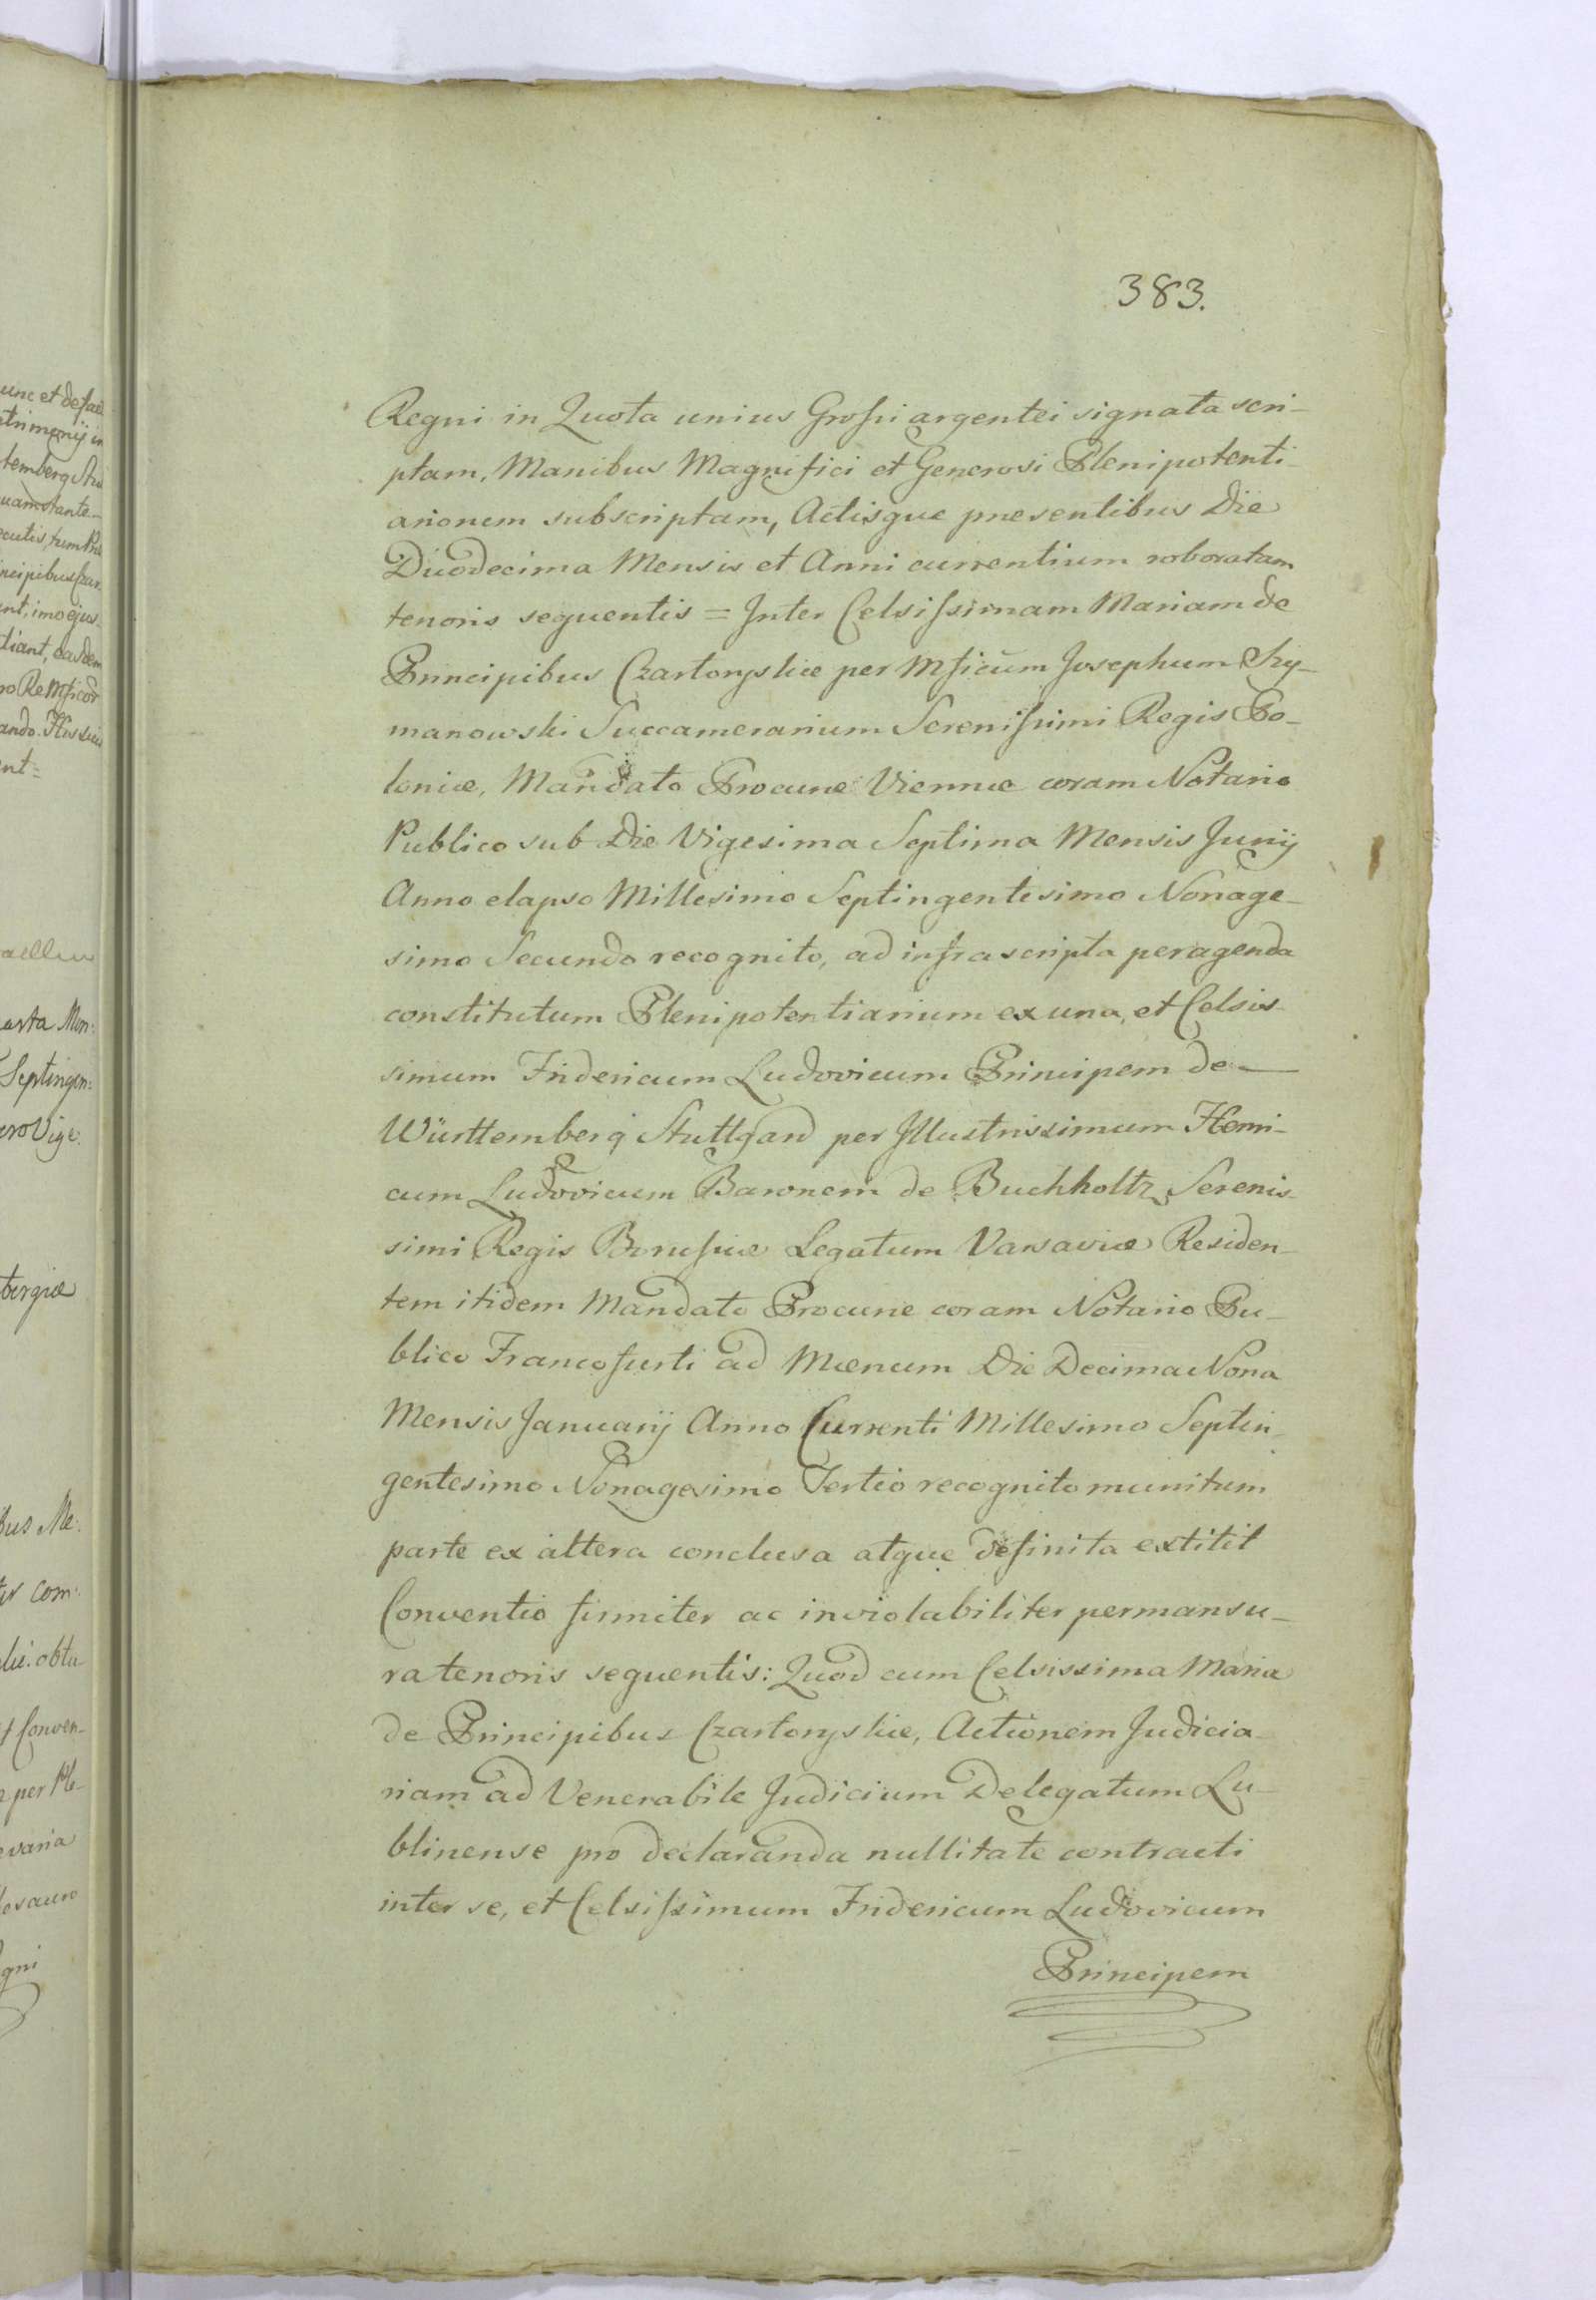 383.
Regni in Quota unius Grossi argentei signata scri-
ptam, Manibus Magnifici et Generosi Plenipotenti-
ariorum subscriptam, Actisque presentibus Die
Duodecima Mensis et Anni currentium roboratam
tenoris sequentis = Inter Celsissimam Mariam de
Principibus Czartoryskie per Mficum Josephum Szy-
manowski Succamerarium Serenissimi Regis Po-
loniæ, Mandato Procuræ Viennæ coram Notario
Publico sub Die Vigesima Septima Mensis Junij
Anno elapso Millesimo Septingentesimo Nonage-
simo Secundo recognito, ad infrascripta peragenda
constitutum Plenipotentiarium ex una, et Celsis-
simum Fridericum Ludovicum Principem de
Württemberg Stuttgard per Illustrissimum Henri-
cum Ludovicum Baronem de Buchholtz Serenis-
simi Regis Borussiæ Legatum Varsaviæ Residen-
tem itidem Mandato Procuræ coram Notario Pu-
blico Francofurti ad Mœnum Die Decima Nona
Mensis Januarij Anno Currenti Millesimo Septin-
gentesimo Nonagesimo Tertio recognito munitum
parte ex altera conclusa atque definita extitit
Conventio firmiter ac inviolabiliter permansu-
ra tenoris sequentis: Quod cum Celsissima Maria
de Principibus Czartoryskie, Actionem Judicia-
riam ad Venerabile Judicium Delegatum Lu-
blinense pro declaranda nullitate contracti
inter se, et Celsissimum Fridericum Ludovicum
Principem